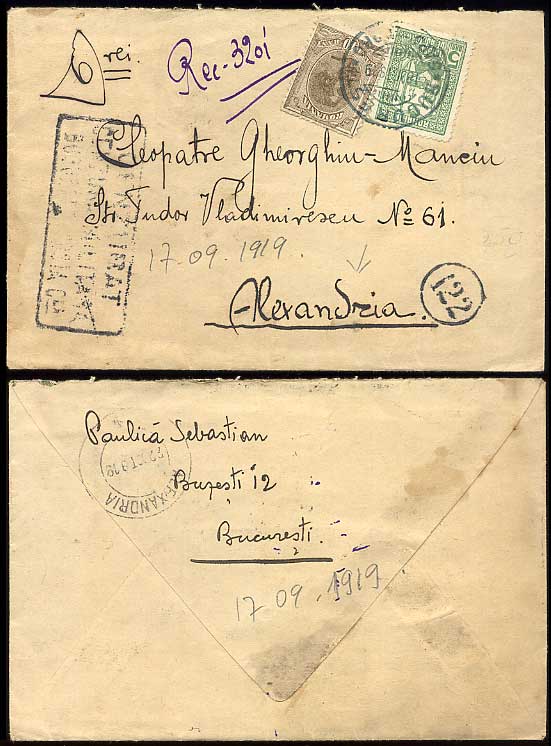 6 rei.
Rec-3201
Cleopatre Gheorghiu-Manciu
Str. Tudor Vladimirescu No 61.
17.09.1919
Alexandria.
122
Paulică Sebastian
Buzești 12
București.
ALEXANDRIA
17.09.1919